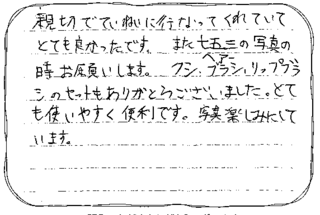 親切でていねいに行なってくれていて
とても良かったです。また七五三の写真の
時お願いします。クシ、ヘアーブラシ、リップブラ
シのセットもありがとうございました。とて
も使いやすく便利です。写真楽しみにして
います。